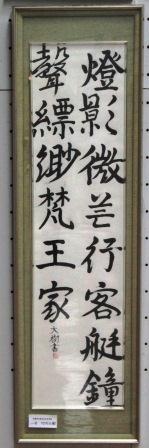 燈影微茫行客艇鐘
聲縹緲梵王家
大樹書